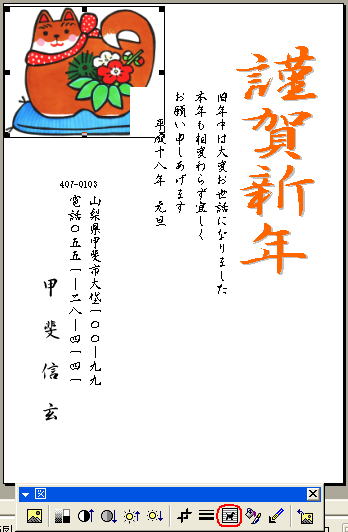 謹賀新年
旧年中は大変お世話になりました
本年も相変わらず宜しく
お願い申しあげます
平成十八年 元旦
407-0103
山梨県甲斐市大垈一〇〇ー九九
電話〇五五一ー二八ー四一四一
甲斐信玄
図